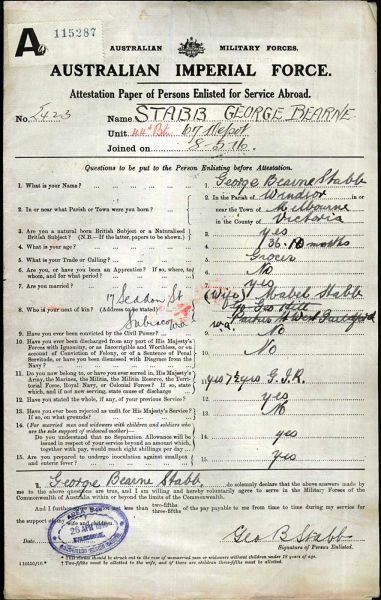 A
115287
AUSTRALIAN MILITARY FORCES.
AUSTRALIAN IMPERIAL FORCE.
Attestation Paper of Persons Enlisted for Service Abroad.
No. 2423 Name STABB GEORGE BEARNE
Unit 44th Btn 67 Depot
Joined on 8.5.16.
Questions to be put to the Person Enlisting before Attestation.
1. What is your Name? 1. George Bearne Stabb
2. In or near what Parish or Town were you born? 2. In the Parish of Windsor
near the Town of Melbourne
in the County of Victoria
3. Are you a natural born British Subject or a Naturalised British Subject? (N.B.—If the latter, papers to be shown.) 3. yes
4. What is your age? 4. 36 months
5. What is your Trade or Calling? 5. Grocer
6. Are you, or have you been an Apprentice? If so, where, to whom, and for what period? 6. No
7. Are you married? 7. yes
8. Who is your next of kin? (Address to be stated) 8. (Wife) Mabel Stabb
17 St
Subiaco W.A.
W.A.
9. Have you ever been convicted by the Civil Power? 9. No
10. Have you ever been discharged from any part of His Majesty's Forces with Ignominy, or as Incorrigible and Worthless, or on account of Conviction of Felony, or of a Sentence of Penal Servitude, or have you been dismissed with Disgrace from the Navy? 10. No
11. Do you now belong to, or have you ever served in, His Majesty's Army, the Marines, the Militia, the Militia Reserve, the Territorial Force, Royal Navy, or Colonial Forces? If so, state which, and if not now serving, state cause of discharge 11. yes 7½ yrs G.I.R.
12. Have you stated the whole, if any, of your previous Service? 12. yes
13. Have you ever been rejected as unfit for His Majesty's Service? If so, on what grounds? 13. No
14. (For married men and widowers with children and soldiers who are the sole support of widowed mother)—
Do you understand that no Separation Allowance will be issued in respect of your service beyond an amount which, together with pay, would reach eight shillings per day? 14. yes
15. Are you prepared to undergo inoculation against smallpox and enteric fever? 15. yes
I, George Bearne Stabb, do solemnly declare that the above answers made by me to the above questions are true, and I am willing and hereby voluntarily agree to serve in the Military Forces of the Commonwealth of Australia within or beyond the limits of the Commonwealth.
And I further agree to allot not less than two-fifths three-fifths of the pay payable to me from time to time during my service for the support of my wife and children.
26 APR
Geo B Stabb
Signature of Person Enlisted.